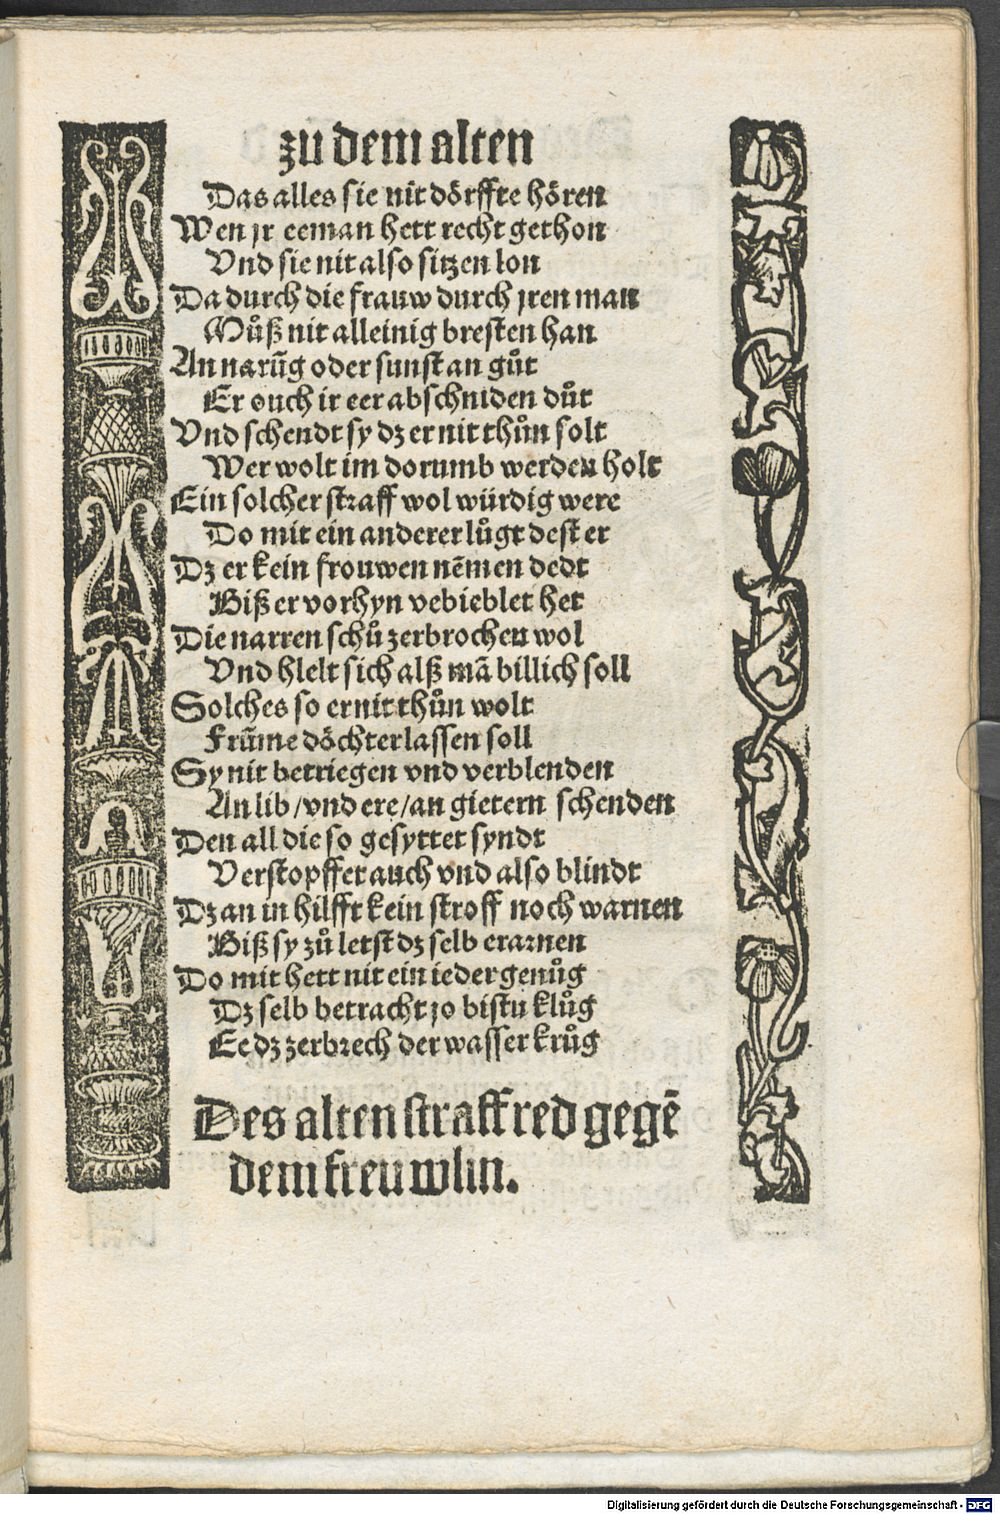 zu dem alten
Das alles sie nit dörffte hören
Wen jr eeman hett recht gethon
Vnd sie nit also sitzen lon
Da durch die frauw durch jren man
Můß nit alleinig bresten han
An narũg oder sunst an gůt
Er ouch ir eer abschniden důt
Vnd schendt sy dz er nit thůn solt
Wer wolt im dorumb werden holt
Ein solcher straff wol würdig were
Do mit ein anderer lůgt dest er
Dz er kein frouwen nẽmen dedt
Biß er vorhyn vebieblet het
Die narren schů zerbrochen wol
Vnd hlelt sich alß mã billich soll
Solches so er nit thůn wolt
Frũme döchter lassen soll
Sy nit betriegen vnd verblenden
An lib/vnd ere/an gietern schenden
Den all die so gesyttet syndt
Verstopffet auch vnd also blindt
Dz an in hilfft kein stroff noch warnen
Biß sy zů letst dz selb erarnen
Do mit hett nit ein ieder genůg
Dz selb betracht jo bistu klůg
Ee dz zerbrech der wasser krůg
Des alten straff red gegẽ
dem freuwlin.
Digitalisierung gefördert durch die Deutsche Forschungsgemeinschaft - DFG